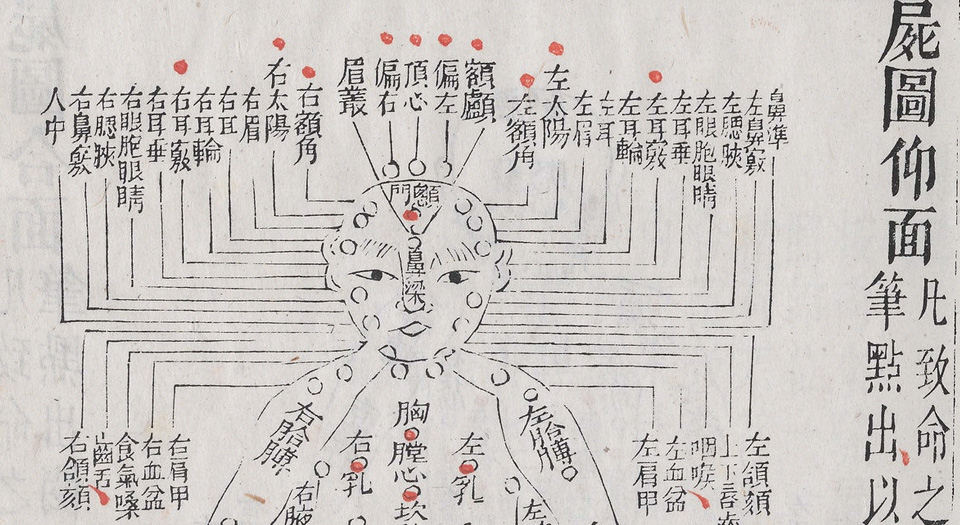 屍圖仰面
凡致命之
筆點出以
鼻準
左鼻竅
左腮脥
左眼胞眼睛
左耳垂
左耳竅
左耳輪
左耳
左眉
左太陽
左額角
額顱
偏左
頂心
偏右
眉叢
右額角
右太陽
右眉
右耳
右耳輪
右耳竅
右耳垂
右眼胞眼睛
右腮脥
右鼻竅
人中
顖門
鼻梁
左頷頦
上下唇
咽喉
左血盆
左肩甲
左胳膊
左乳
左
胸膛
心坎
右乳
右腋
右胳膊
右肩甲
右血盆
食氣嗓
齒舌
右頷頦